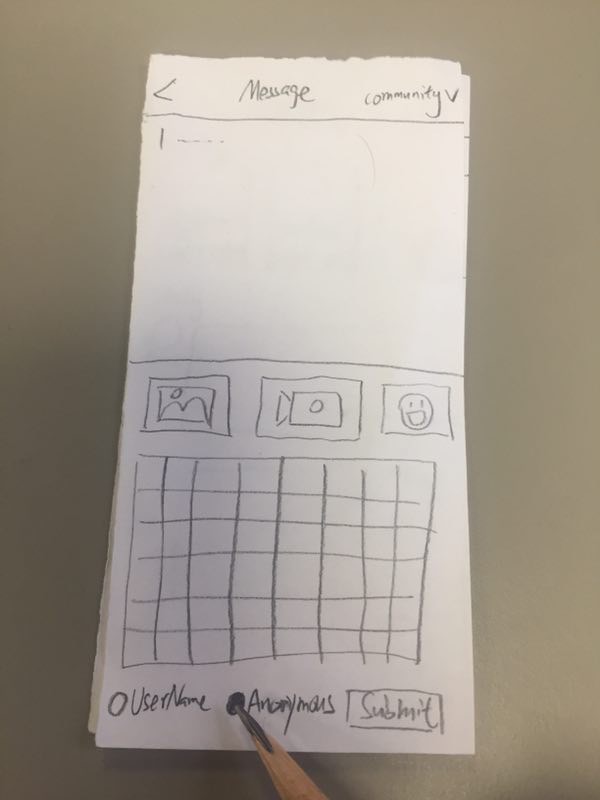 < Message community V
UserName Anonymous Submit